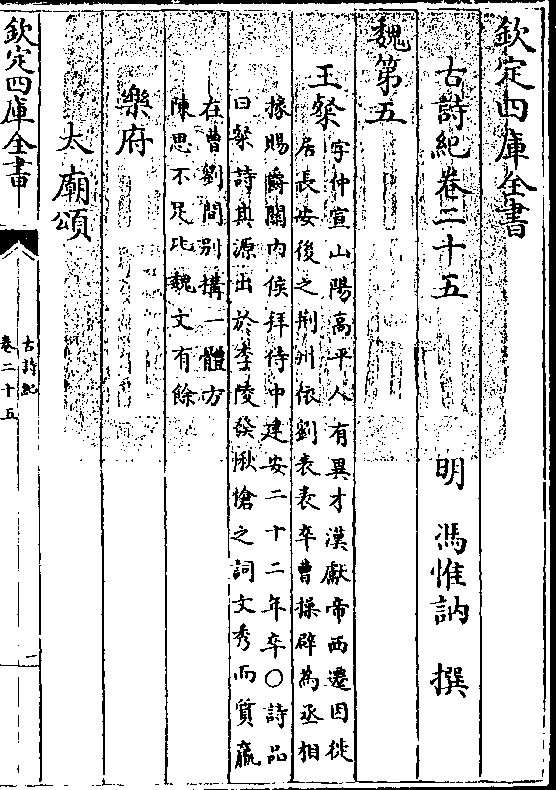 欽定四庫全書
古詩紀卷二十五
明 馮惟訥 撰
魏第五
王粲
字仲宣山陽高平人有異才漢獻帝西遷因徙
居長安後之荆州依劉表表卒曹操辟為丞相
掾賜爵關内侯拜侍中建安二十二年卒○詩品
曰粲詩其源出於李陵發愀愴之詞文秀而質羸
在曹劉間别構一體方
陳思不足比魏文有餘
樂府
太廟頌
欽定四庫全書
古詩紀
卷二十五
一